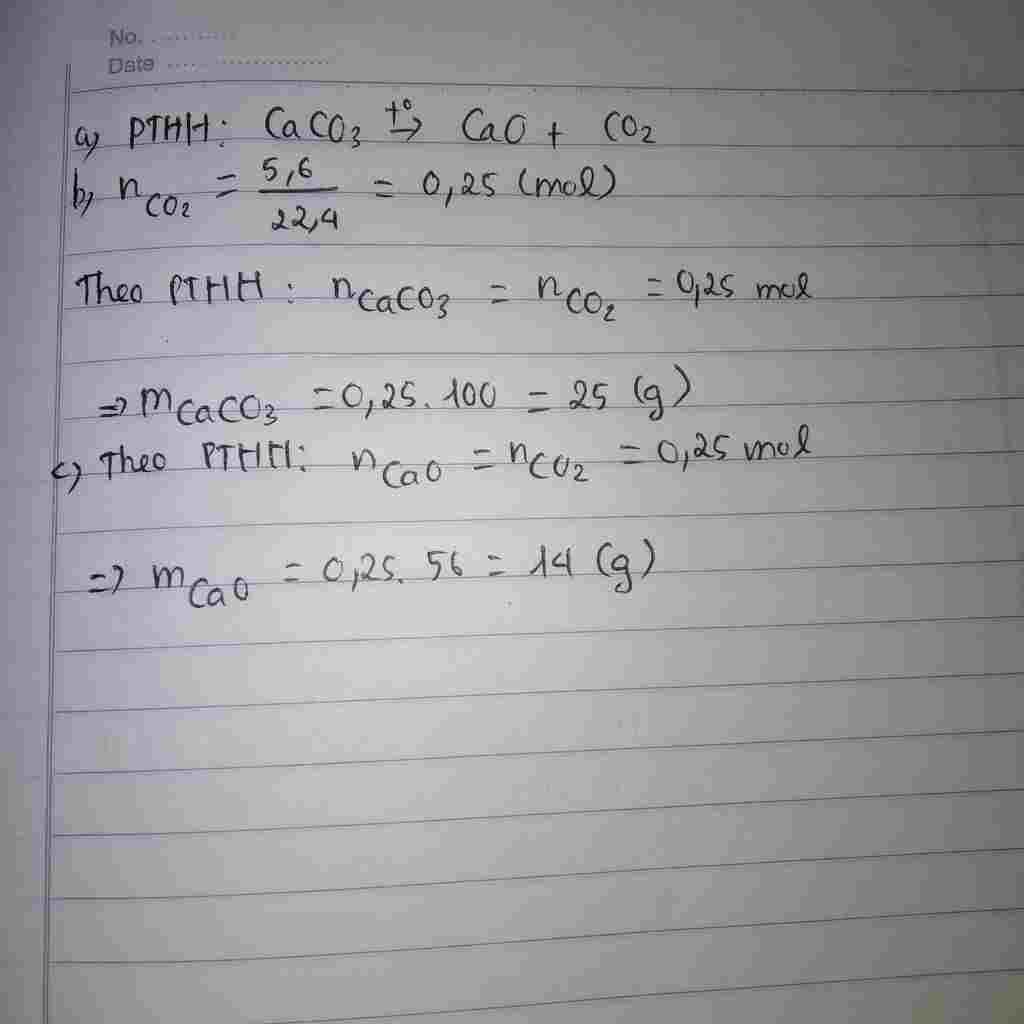 No. ..........
Date ......................
a) PTHH: CaCO3 t°→ CaO + CO2
b) nCO2 = 5,6/22,4 = 0,25 (mol)
Theo PTHH: nCaCO3 = nCO2 = 0,25 mol
=> mCaCO3 = 0,25. 100 = 25 (g)
c) Theo PTHH: nCaO = nCO2 = 0,25 mol
=> mCaO = 0,25. 56 = 14 (g)